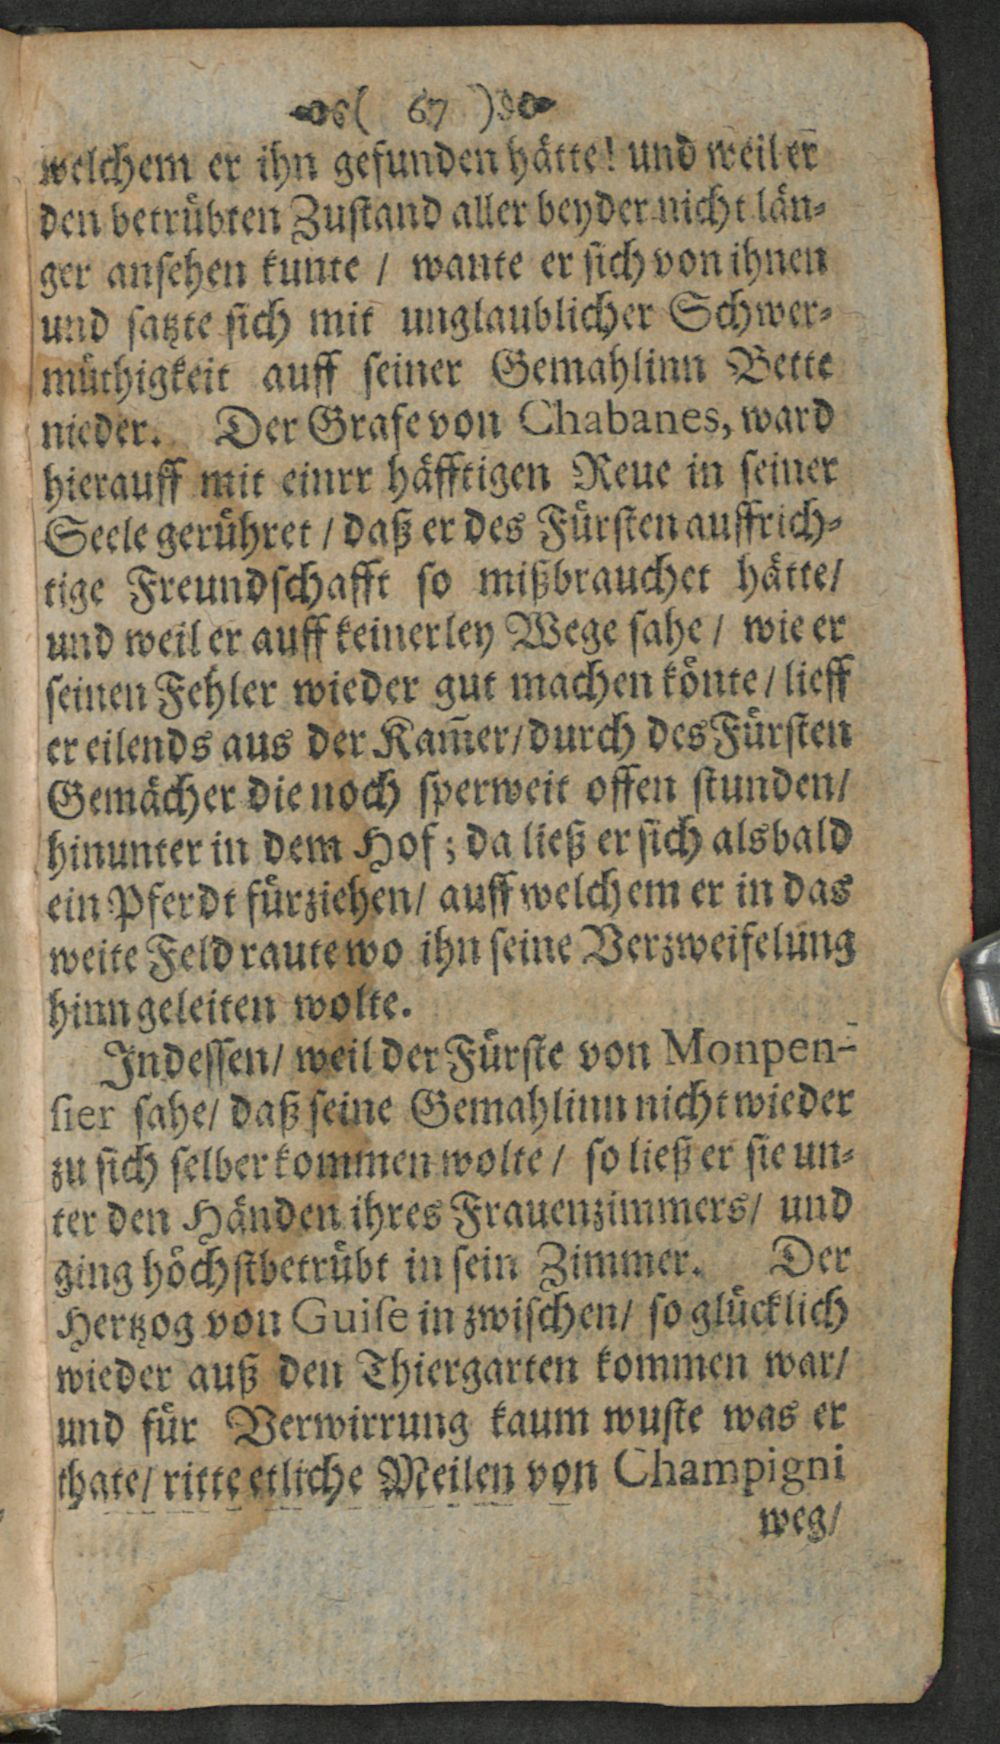 ( 67 )
welchem er ihn gefunden hätte! und weil er
den betrübten Zustand aller beyder nicht län-
ger ansehen kunte / wante er sich von ihnen
und satzte sich mit unglaublicher Schwer-
müthigkeit auff seiner Gemahlinn Bette
nieder. Der Grafe von Chabanes, ward
hierauff mit einrr häfftigen Reue in seiner
Seele gerühret / daß er des Fürsten auffrich-
tige Freundschafft so mißbrauchet hätte/
und weil er auff keinerley Wege sahe / wie er
seinen Fehler wieder gut machen könte / lieff
er eilends aus der Kam̃er/ durch des Fürsten
Gemächer die noch sperweit offen stunden/
hinunter in dem Hof; da ließ er sich alsbald
ein Pferdt fürziehen/ auff welchem er in das
weite Feld raute wo ihn seine Verzweifelung
hinn geleiten wolte.
Indessen/ weil der Fürste von Monpen-
sier sahe/ daß seine Gemahlinn nicht wieder
zu sich selber kommen wolte / so ließ er sie un-
ter den Händen ihres Frauenzimmers/ und
ging höchstbetrübt in sein Zimmer. Der
Hertzog von Guise in zwischen/ so glücklich
wieder auß den Thiergarten kommen war/
und für Verwirrung kaum wuste was er
thate/ ritte etliche Meilen von Champigni
weg/